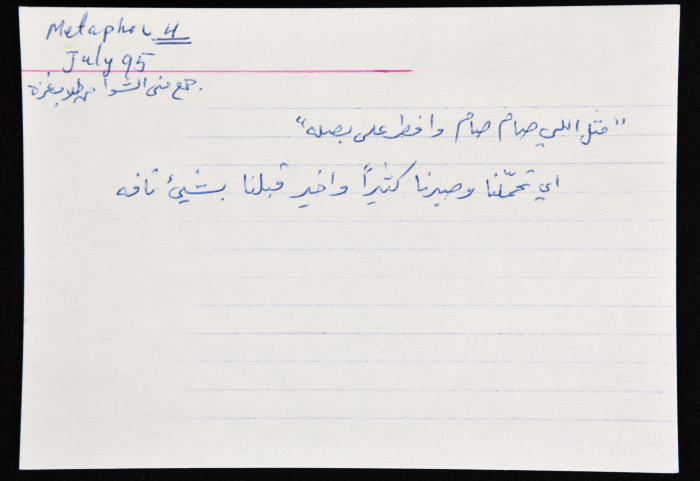 Metaphor 4
July 95
جمع منى الشوا من طلاب غزة.
"مثل اللي صام صام وافطر على بصله"
اي تحمّلنا وصبرنا كثيراً واخير قبلنا بشيئ تافه